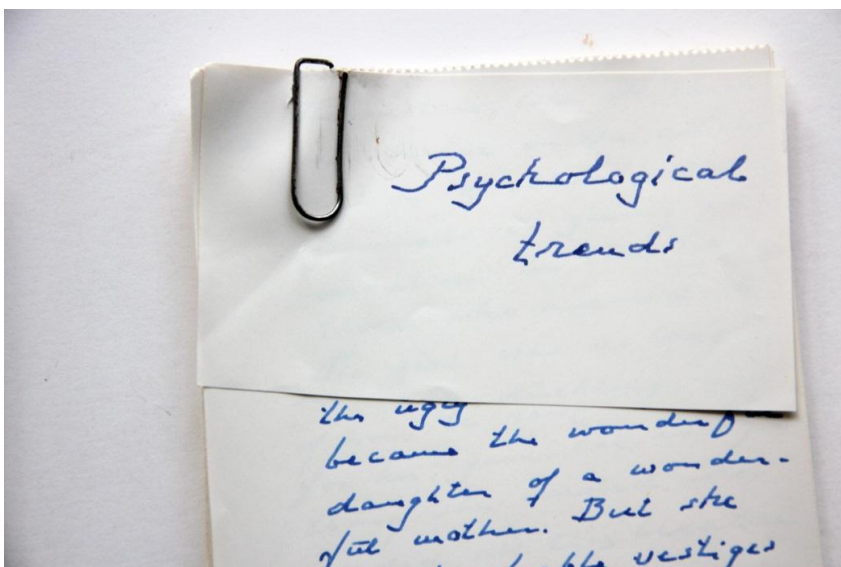 Psychological
trends
the ugly
became the
daughter of a wonder-
ful mother. But she
vestiges